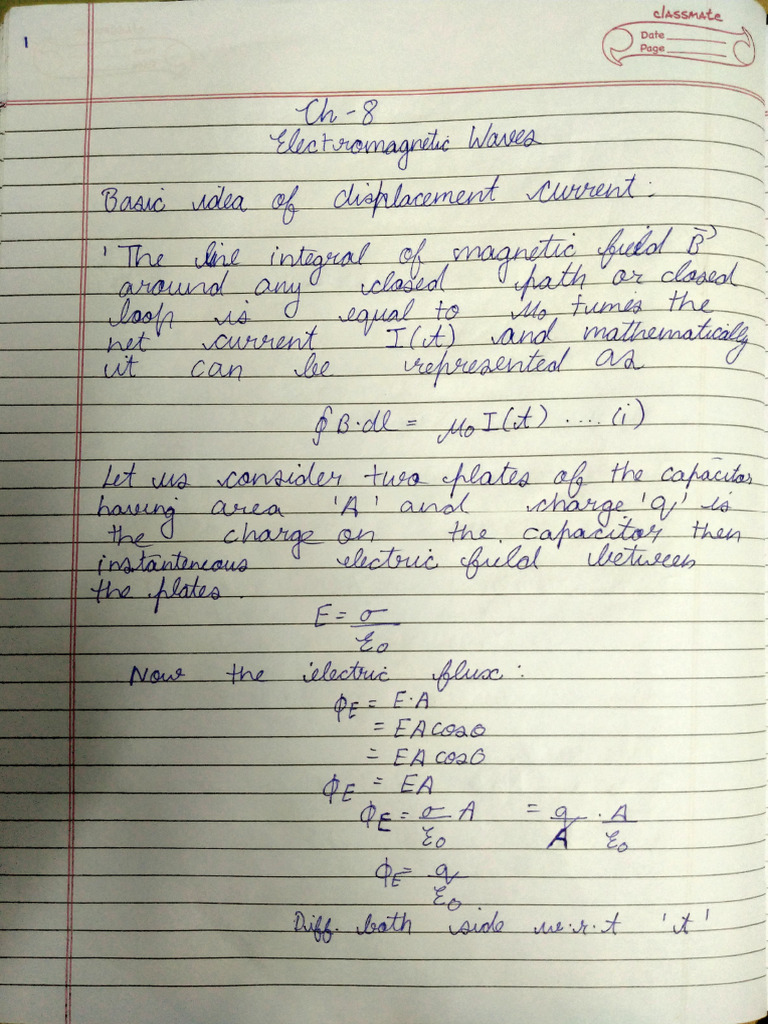 1
classmate
Date
Page
Ch-8
Electromagnetic Waves
Basic idea of displacement current:
'The line integral of magnetic field B⃗
around any closed path or closed
loop is equal to μ₀ tumes the
net current I(t) and mathematically
it can be represented as
∮B·dl = μ₀I(t) ....(i)
Let us consider two plates of the capacitor
having area 'A' and charge 'q' is
the charge on the capacitor then
instanteneous electric field between
the plates.
E = σ/ε₀
Now the electric flux:
ϕE = E·A
= EA cosθ
= EA cos0
ϕE = EA
ϕE = σ/ε₀ A = q/A · A/ε₀
ϕE = q/ε₀
Diff. both side w.r.t 't'